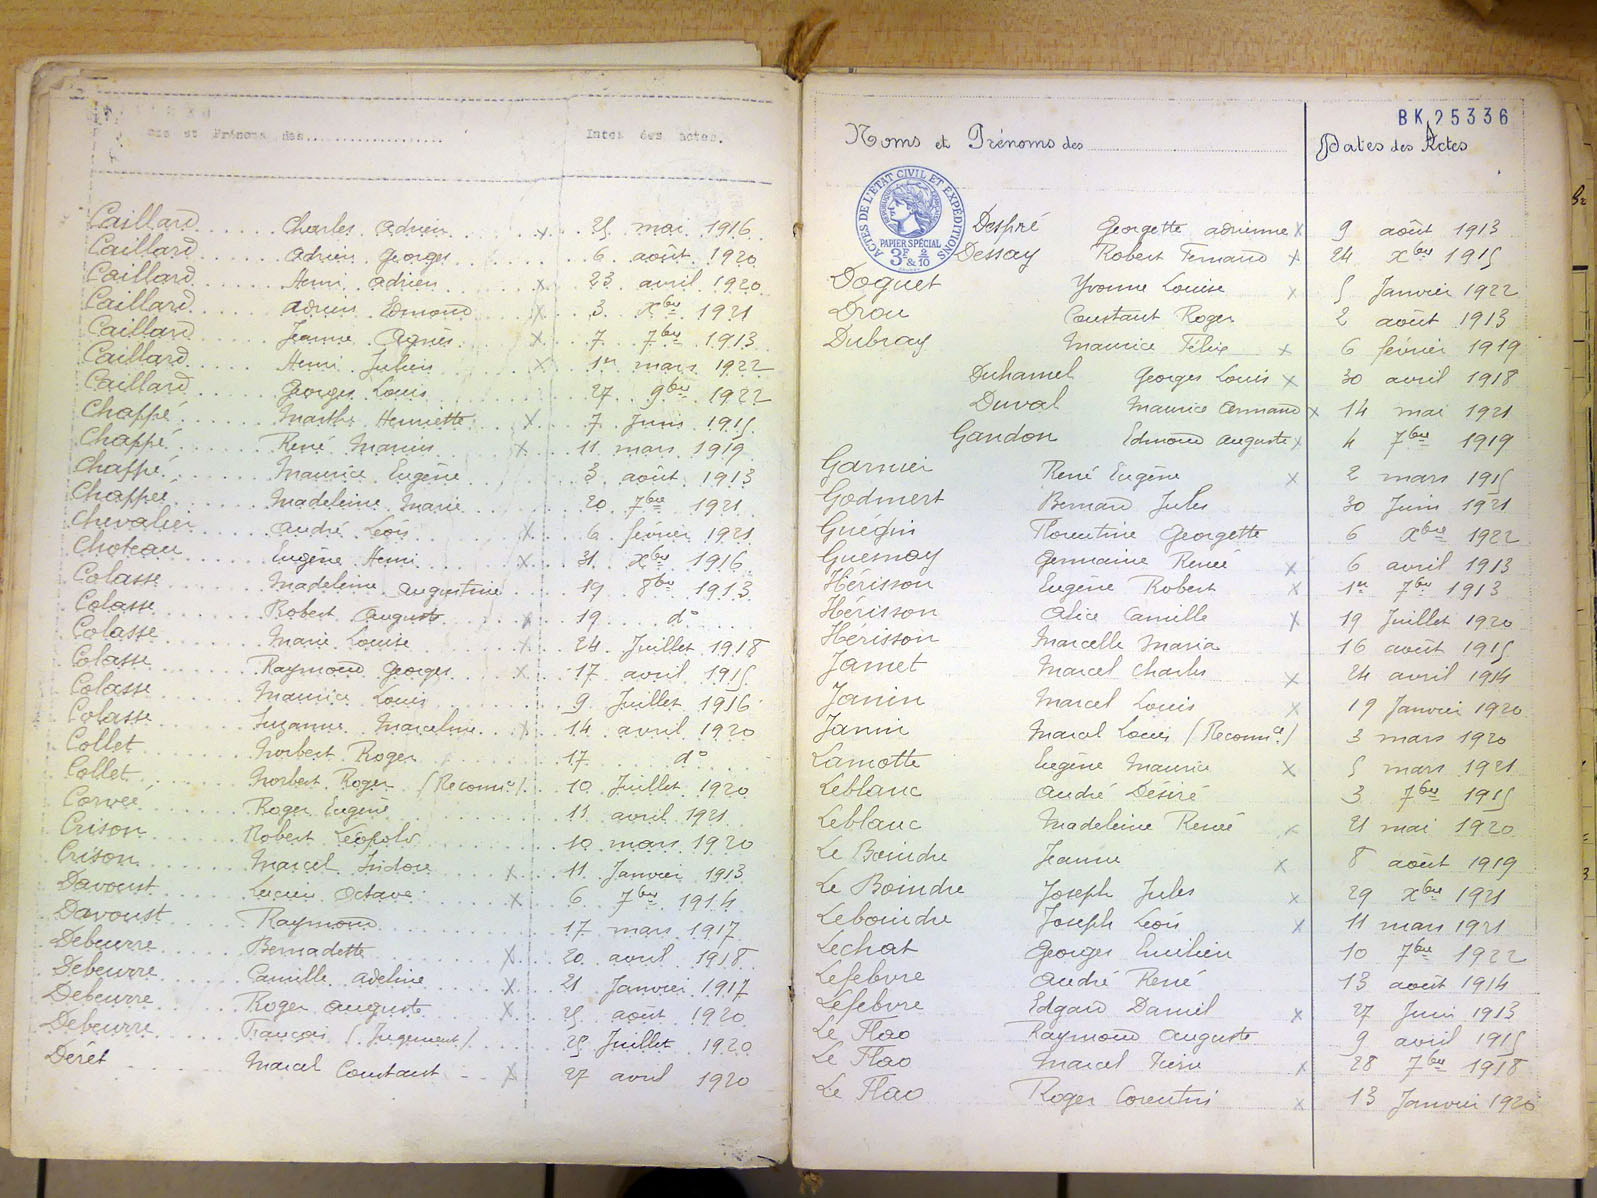 Noms et Prénoms des
Dates des actes.
Caillard Charles Adrien x 25 mai 1916
Caillard Adrien Georges 6 août 1920
Caillard Henri Adrien x 23 avril 1920
Caillard Adrien Edmond x 3 Xbre 1921
Caillard Jeanne Agnès x 7 7bre 1913
Caillard Henri Julien x 1er mars 1922
Caillard Georges Louis 27 9bre 1922
Chappé Marthe Henriette x 7 Juin 1915
Chappé René Marius x 11 mars 1919
Chappé Maurice Eugène 3 août 1913
Chappée Madeleine Marie 20 7bre 1921
Chevalier André Léon x 6 février 1921
Choteau Eugène Henri x 31 Xbre 1916
Colasse Madeleine Augustine 19 8bre 1913
Colasse Robert Auguste x 19 do
Colasse Marie Louise x 24 Juillet 1918
Colasse Raymond Georges x 17 avril 1915
Colasse Maurice Louis 9 Juillet 1916
Colasse Suzanne Marceline x 14 avril 1920
Collet Norbert Roger 17 do
Collet Norbert Roger (Reconnce) 10 Juillet 1920
Corvée Roger Eugène 11 avril 1921
Crison Robert Léopold 10 mars 1920
Crison Marcel Isidore x 11 Janvier 1913
Davoust Lucien Octave x 6 7bre 1914
Davoust Raymond 17 mars 1917
Debeurre Bernadette x 20 avril 1918
Debeurre Camille Adeline x 21 Janvier 1917
Debeurre Roger Auguste x 25 août 1920
Debeurre François (Jugement) 25 Juillet 1920
Derêt Marcel Constant x 27 avril 1920
BK 25336
Noms et Prénoms des
Dates des Actes
ACTES DE L'ÉTAT CIVIL ET EXPÉDITIONS
PAPIER SPÉCIAL
3F & 2/10
Despré Georgette Adrienne x 9 août 1913
Dessay Robert Fernand x 24 Xbre 1915
Doguet Yvonne Louise x 5 Janvier 1922
Drou Constant Roger 2 août 1913
Dubray Maurice Félix x 6 février 1919
Duhamel Georges Louis x 30 avril 1918
Duval Maurice Armand x 14 mai 1921
Gandon Edmond Auguste x 4 7bre 1919
Garnier René Eugène x 2 mars 1915
Godmert Bernard Jules 30 Juin 1921
Guegin Florentine Georgette 6 Xbre 1922
Guesnay Germaine Renée x 6 avril 1913
Hérisson Eugène Robert x 1er 7bre 1913
Hérisson Alice Camille x 19 Juillet 1920
Hérisson Marcelle Maria 16 août 1915
Jamet Marcel Charles x 24 avril 1914
Janin Marcel Louis x 19 Janvier 1920
Janin Marcel Louis (Reconnce) 3 mars 1920
Lamotte Eugène Maurice x 5 mars 1921
Leblanc André Désiré 3 7bre 1915
Leblanc Madeleine Renée x 21 mai 1920
Le Boindre Jeanne x 8 août 1919
Le Boindre Joseph Jules x 29 Xbre 1921
Leboindre Joseph Léon x 11 mars 1921
Lechat Georges Emilien 10 7bre 1922
Lefebvre André René 13 août 1914
Lefebvre Edgard Daniel x 27 Juin 1913
Le Flao Raymond Auguste 9 avril 1915
Le Flao Marcel Pierre x 28 7bre 1918
Le Flao Roger Corentin x 13 Janvier 1920